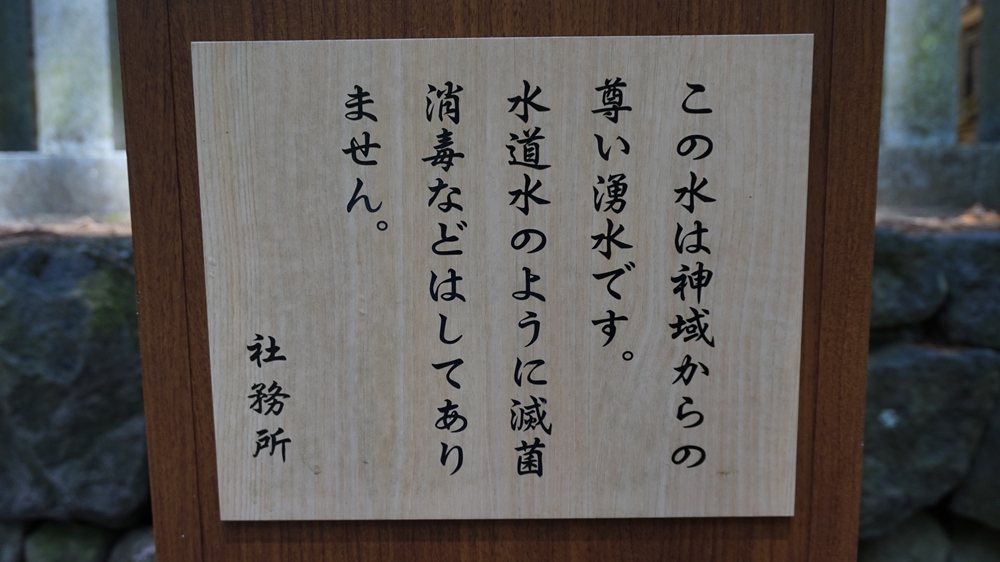 この水は神域からの
尊い湧水です。
水道水のように滅菌
消毒などはしてあり
ません。
社務所